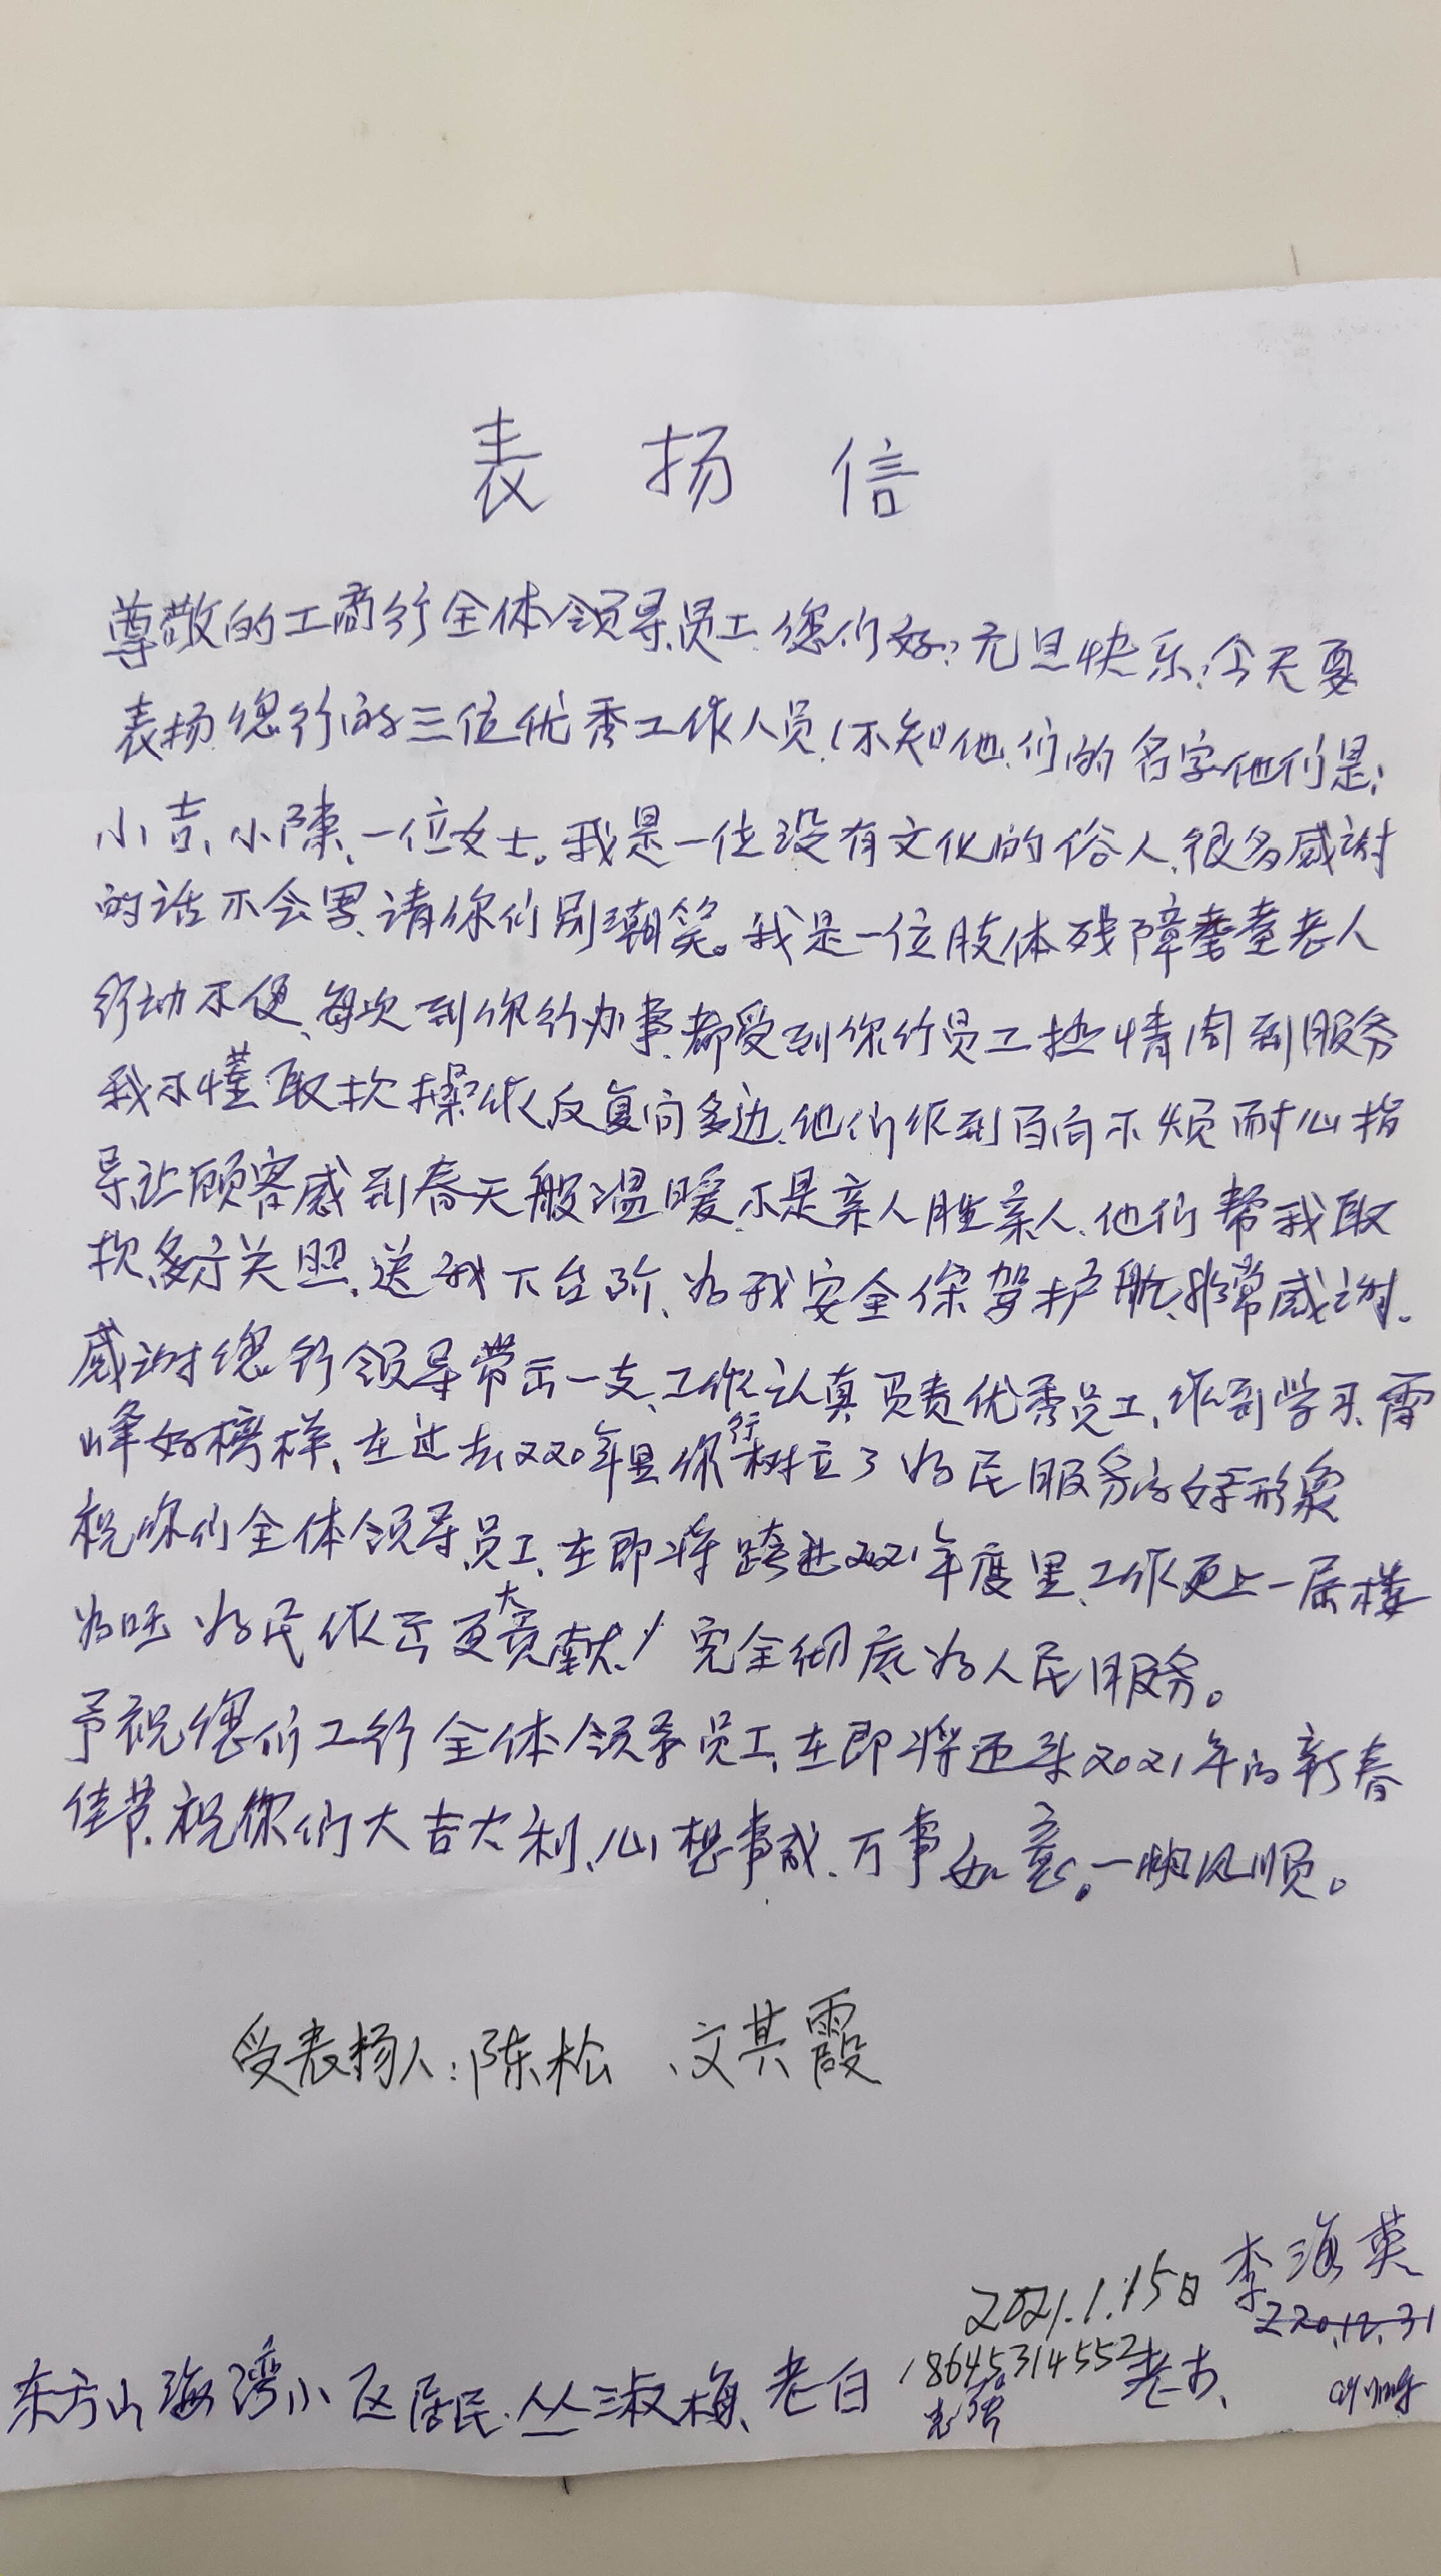 表扬信
尊敬的工商行全体领导、员工、您们好:元旦快乐:今天要
表扬您行的三位优秀工作人员.(不知他们的名字他们是:
小吉、小陳、一位女士。我是一位没有文化的俗人、很多感谢
的话不会写、请你们别潮笑。我是一位肢体残障耄耋老人
行动不便、每次到你行办事、都受到你行员工热情周到服务
我不懂取款操作反复问多边、他们作到百问不烦耐心指
导、让顾客感到春天般温暖、不是亲人胜亲人、他们帮我取
款、多方关照、送我下台阶、为我安全保驾护航、非常感谢.
感谢您行领导带出一支、工作认真负责优秀员工、作到学习雷
峰好榜样、在过去2020年里你行树立了为民服务的好形象
祝你们全体领导、员工、在即将跨进2021年度里、工作更上一层楼
为旺为民作出更大贡献!完全彻底为人民服务。
予祝您们工行全体领导员工、在即将迎来2021年的新春
佳节、祝你们大吉大利、心想事成、万事如意。一帆风顺。
受表扬人:陈松、文其霞
2021.1.15日 李海英
220.12.31
东方山海湾小区居民 丛淑梅、老白 18645314552